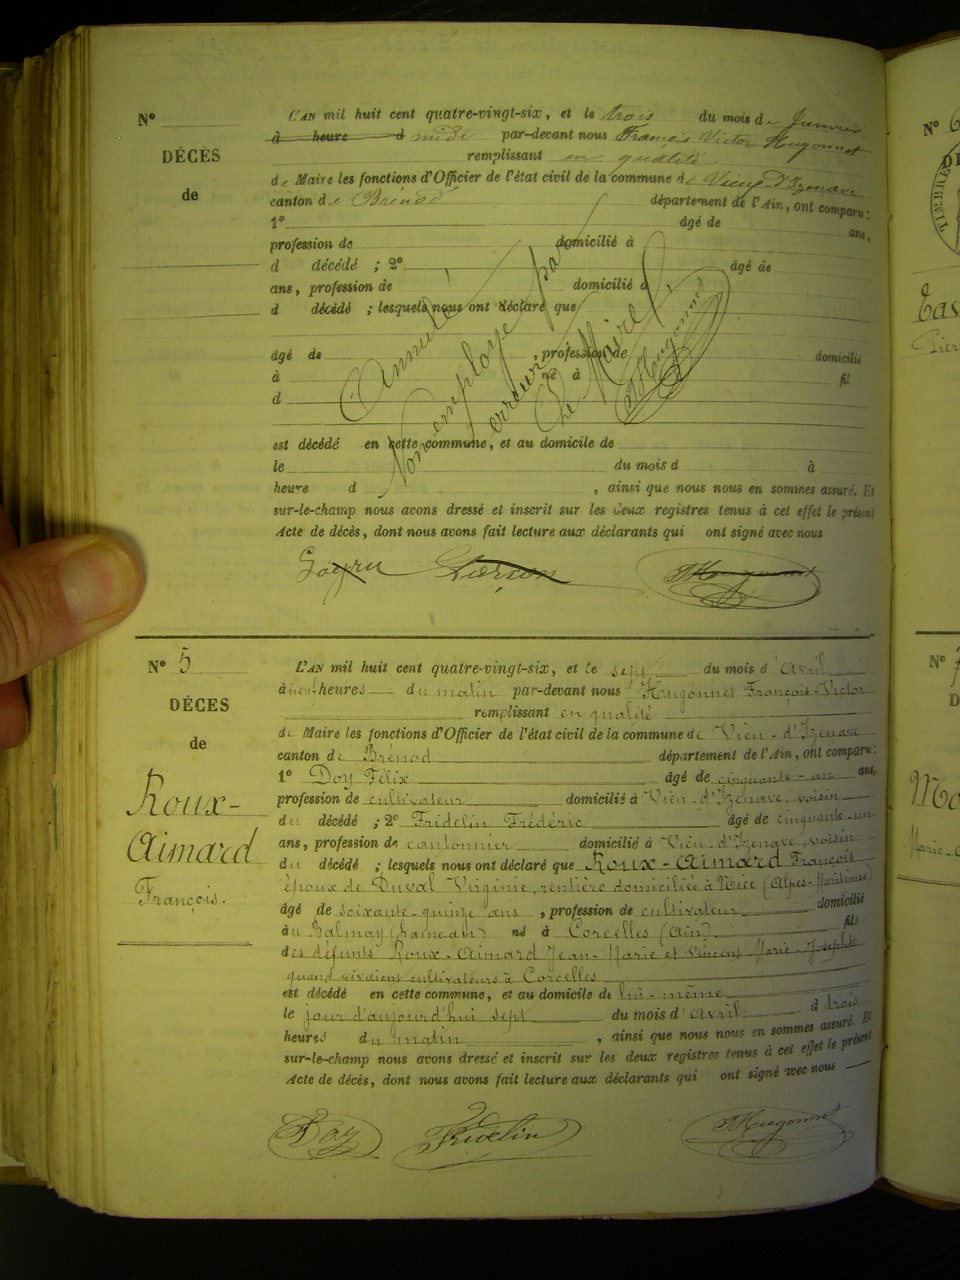 N°
L'AN mil huit cent quatre-vingt-six, et le trois du mois de Janvier
à heure d midi par-devant nous François Victor Hugonnet
DÉCÈS
remplissant en qualité
de Maire les fonctions d'Officier de l'état civil de la commune de Vieu-d'Izenave
de
canton de Brénod département de l'Ain, ont comparu:
1° âgé de ans,
profession de domicilié à
d décédé ; 2° âgé de
ans, profession de domicilié à
d décédé ; lesquels nous ont déclaré que
âgé de , profession de domicilié
à né à fil
d
Annulé
Non employé par
erreur
Le Maire
Hugonnet
est décédé en cette commune, et au domicile de
le du mois d à
heure d , ainsi que nous nous en sommes assuré. Et
sur-le-champ nous avons dressé et inscrit sur les deux registres tenus à cet effet le présent
Acte de décès, dont nous avons fait lecture aux déclarants qui ont signé avec nous
Hugonnet
N° 5
L'AN mil huit cent quatre-vingt-six, et le sept du mois d'Avril
à neuf heures du matin par-devant nous Hugonnet François-Victor
DÉCES
remplissant en qualité
de Maire les fonctions d'Officier de l'état civil de la commune de Vieu-d'Izenave
de
canton de Brénod département de l'Ain, ont comparu:
1° Doy Félix âgé de cinquante-un ans,
profession de cultivateur domicilié à Vieu-d'Izenave, voisin
Roux-
Aimard
François.
du décédé ; 2° Fridelin Frédéric âgé de cinquante-un
ans, profession de cantonnier domicilié à Vieu-d'Izenave, voisin
du décédé ; lesquels nous ont déclaré que Roux-Aimard François
époux de Duval Virginie, rentière domiciliée à Nice (Alpes-Maritimes)
âgé de soixante-quinze ans , profession de cultivateur domicilié
au Balmay (hameau) né à Corcelles (Ain) fils
des défunts Roux-Aimard Jean-Marie et Vincent Marie-Josephte
quand vivaient cultivateurs à Corcelles
est décédé en cette commune, et au domicile de lui-même
le jour d'aujourd'hui sept du mois d'Avril à trois
heures du matin , ainsi que nous nous en sommes assuré. Et
sur-le-champ nous avons dressé et inscrit sur les deux registres tenus à cet effet le présent
Acte de décès, dont nous avons fait lecture aux déclarants qui ont signé avec nous
Doy Fridelin Hugonnet
N°
TIMBRE
N°